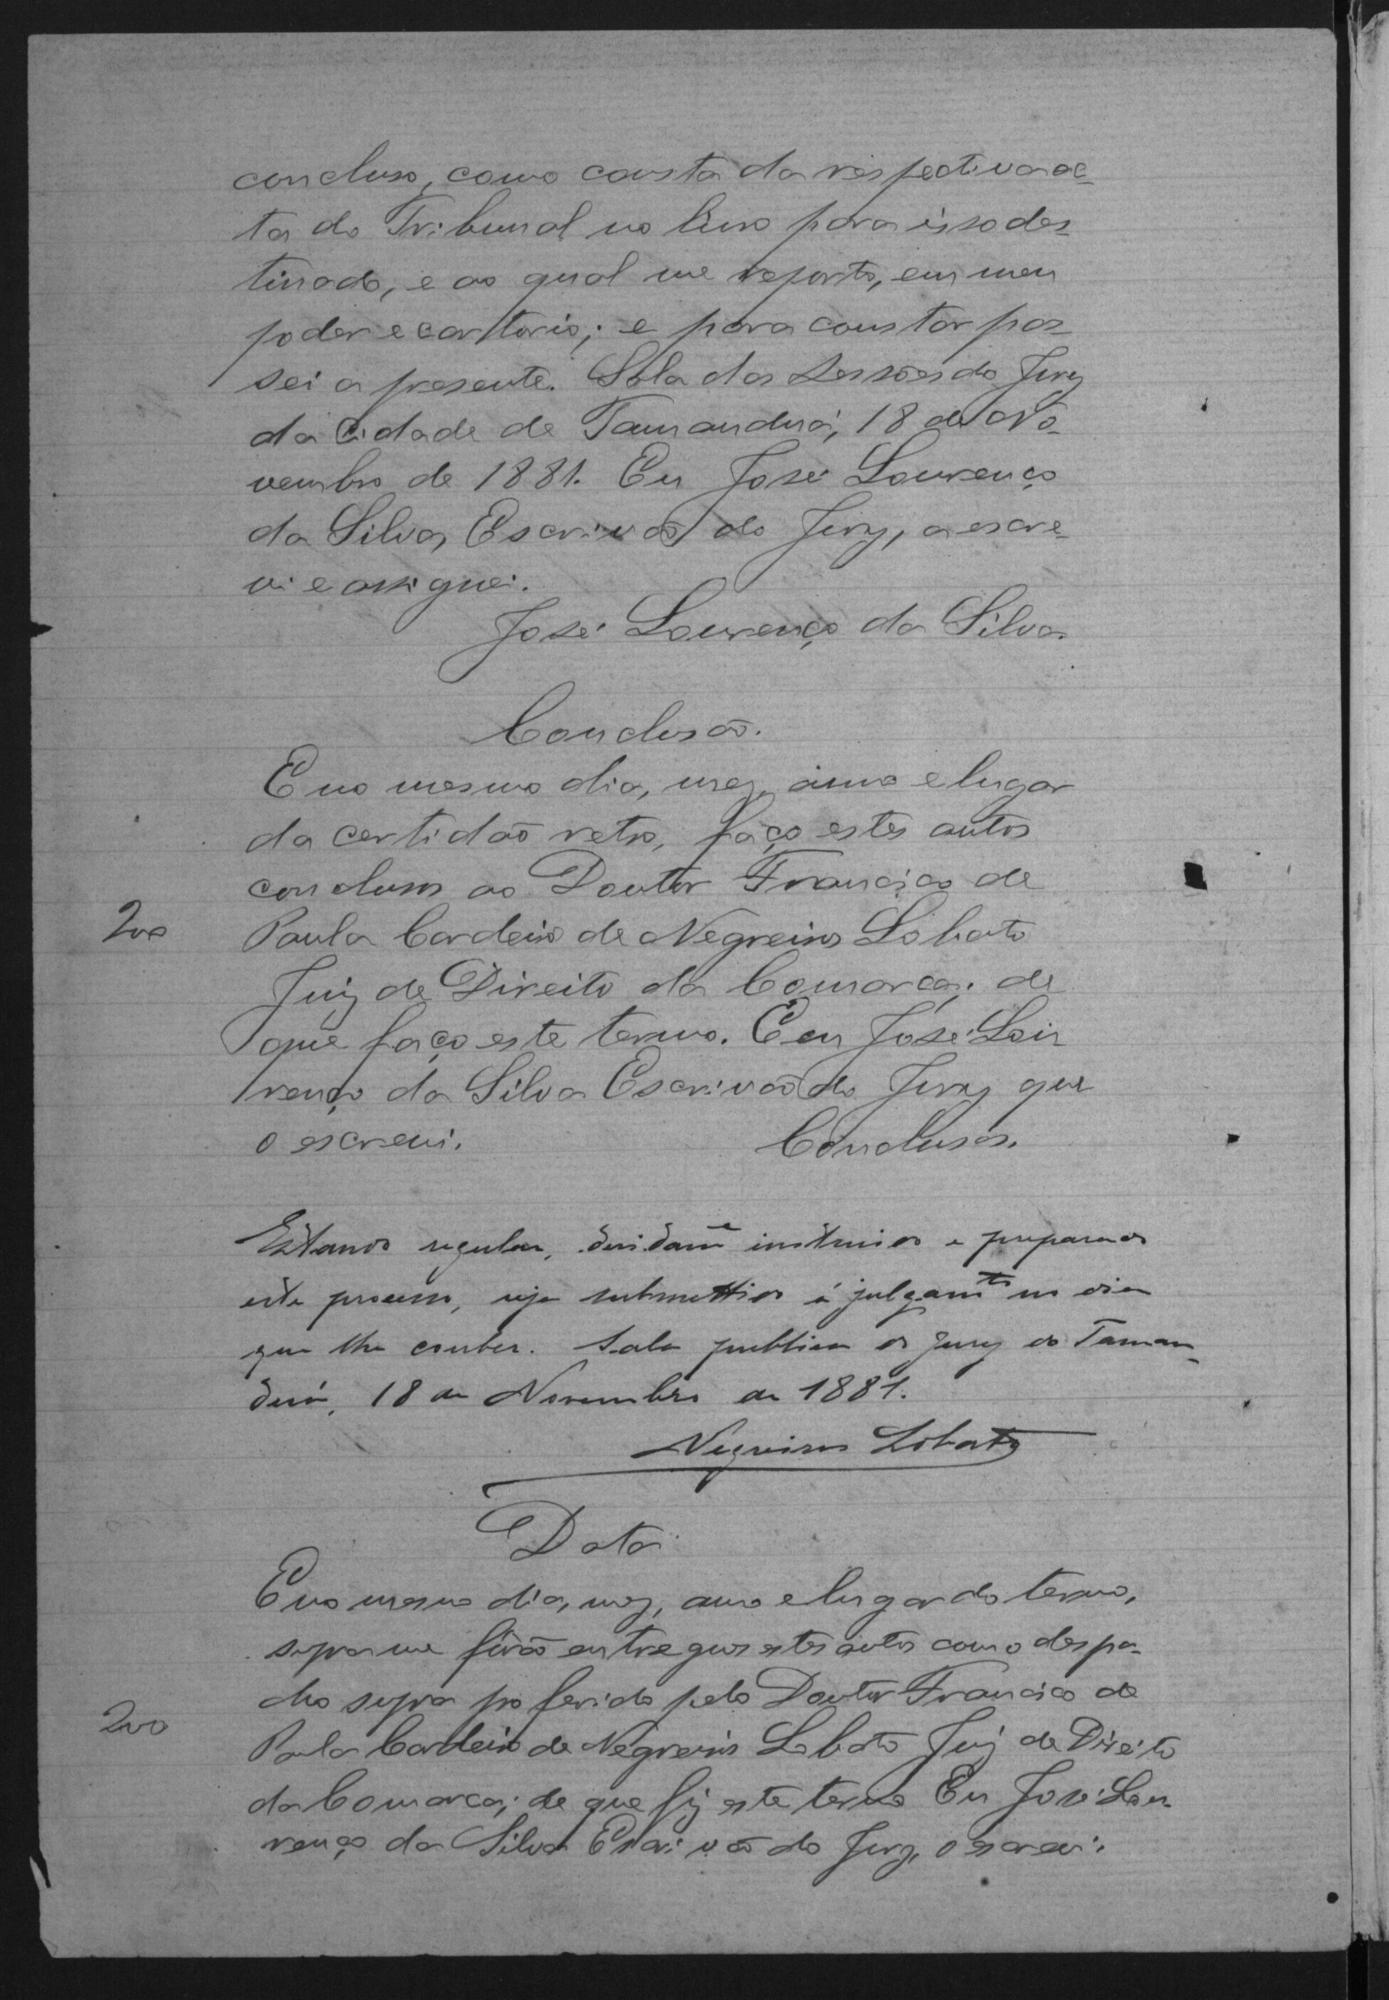 concluso, como consta da respectiva ac-
ta do Tribunal no livro para isso des-
tinado, e ao qual me reporto, em meu
poder e cartorio; e para constar pas-
sei a presente. Sala das Sessões do Jury
da Cidade de Tamanduá, 18 de No-
vembro de 1881. Eu José Lourenço
da Silva, Escrivão do Jury, a escre-
vi e assignei.
José Lourenço da Silva.
Conclusão.
E no mesmo dia, mez, anno e lugar
da certidão retro, faço estes autos
conclusos ao Doutor Francisco de
200
Paula Cordeiro de Negreiros Lobato
Juiz de Direito da Comarca; de
que faço este termo. E eu José Lou-
renço da Silva Escrivão do Jury que
o escrevi. Conclusos.
Estando regular, devidamte instruido e preparado
este processo, seja submettido á julgamto no dia
que lhe couber. Sala publica do Jury do Taman-
duá, 18 de Novembro de 1881.
Negreiros Lobato
Data
E no mesmo dia, mez, anno e lugar do termo,
supra me fôrão entregues estes autos com o despa-
cho supra proferido pelo Doutor Francisco de
200
Paula Cordeiro de Negreiros Lobato Juiz de Direito
da Comarca; de que fiz este termo Eu José Lou-
renço da Silva Escrivão do Jury, o escrevi.